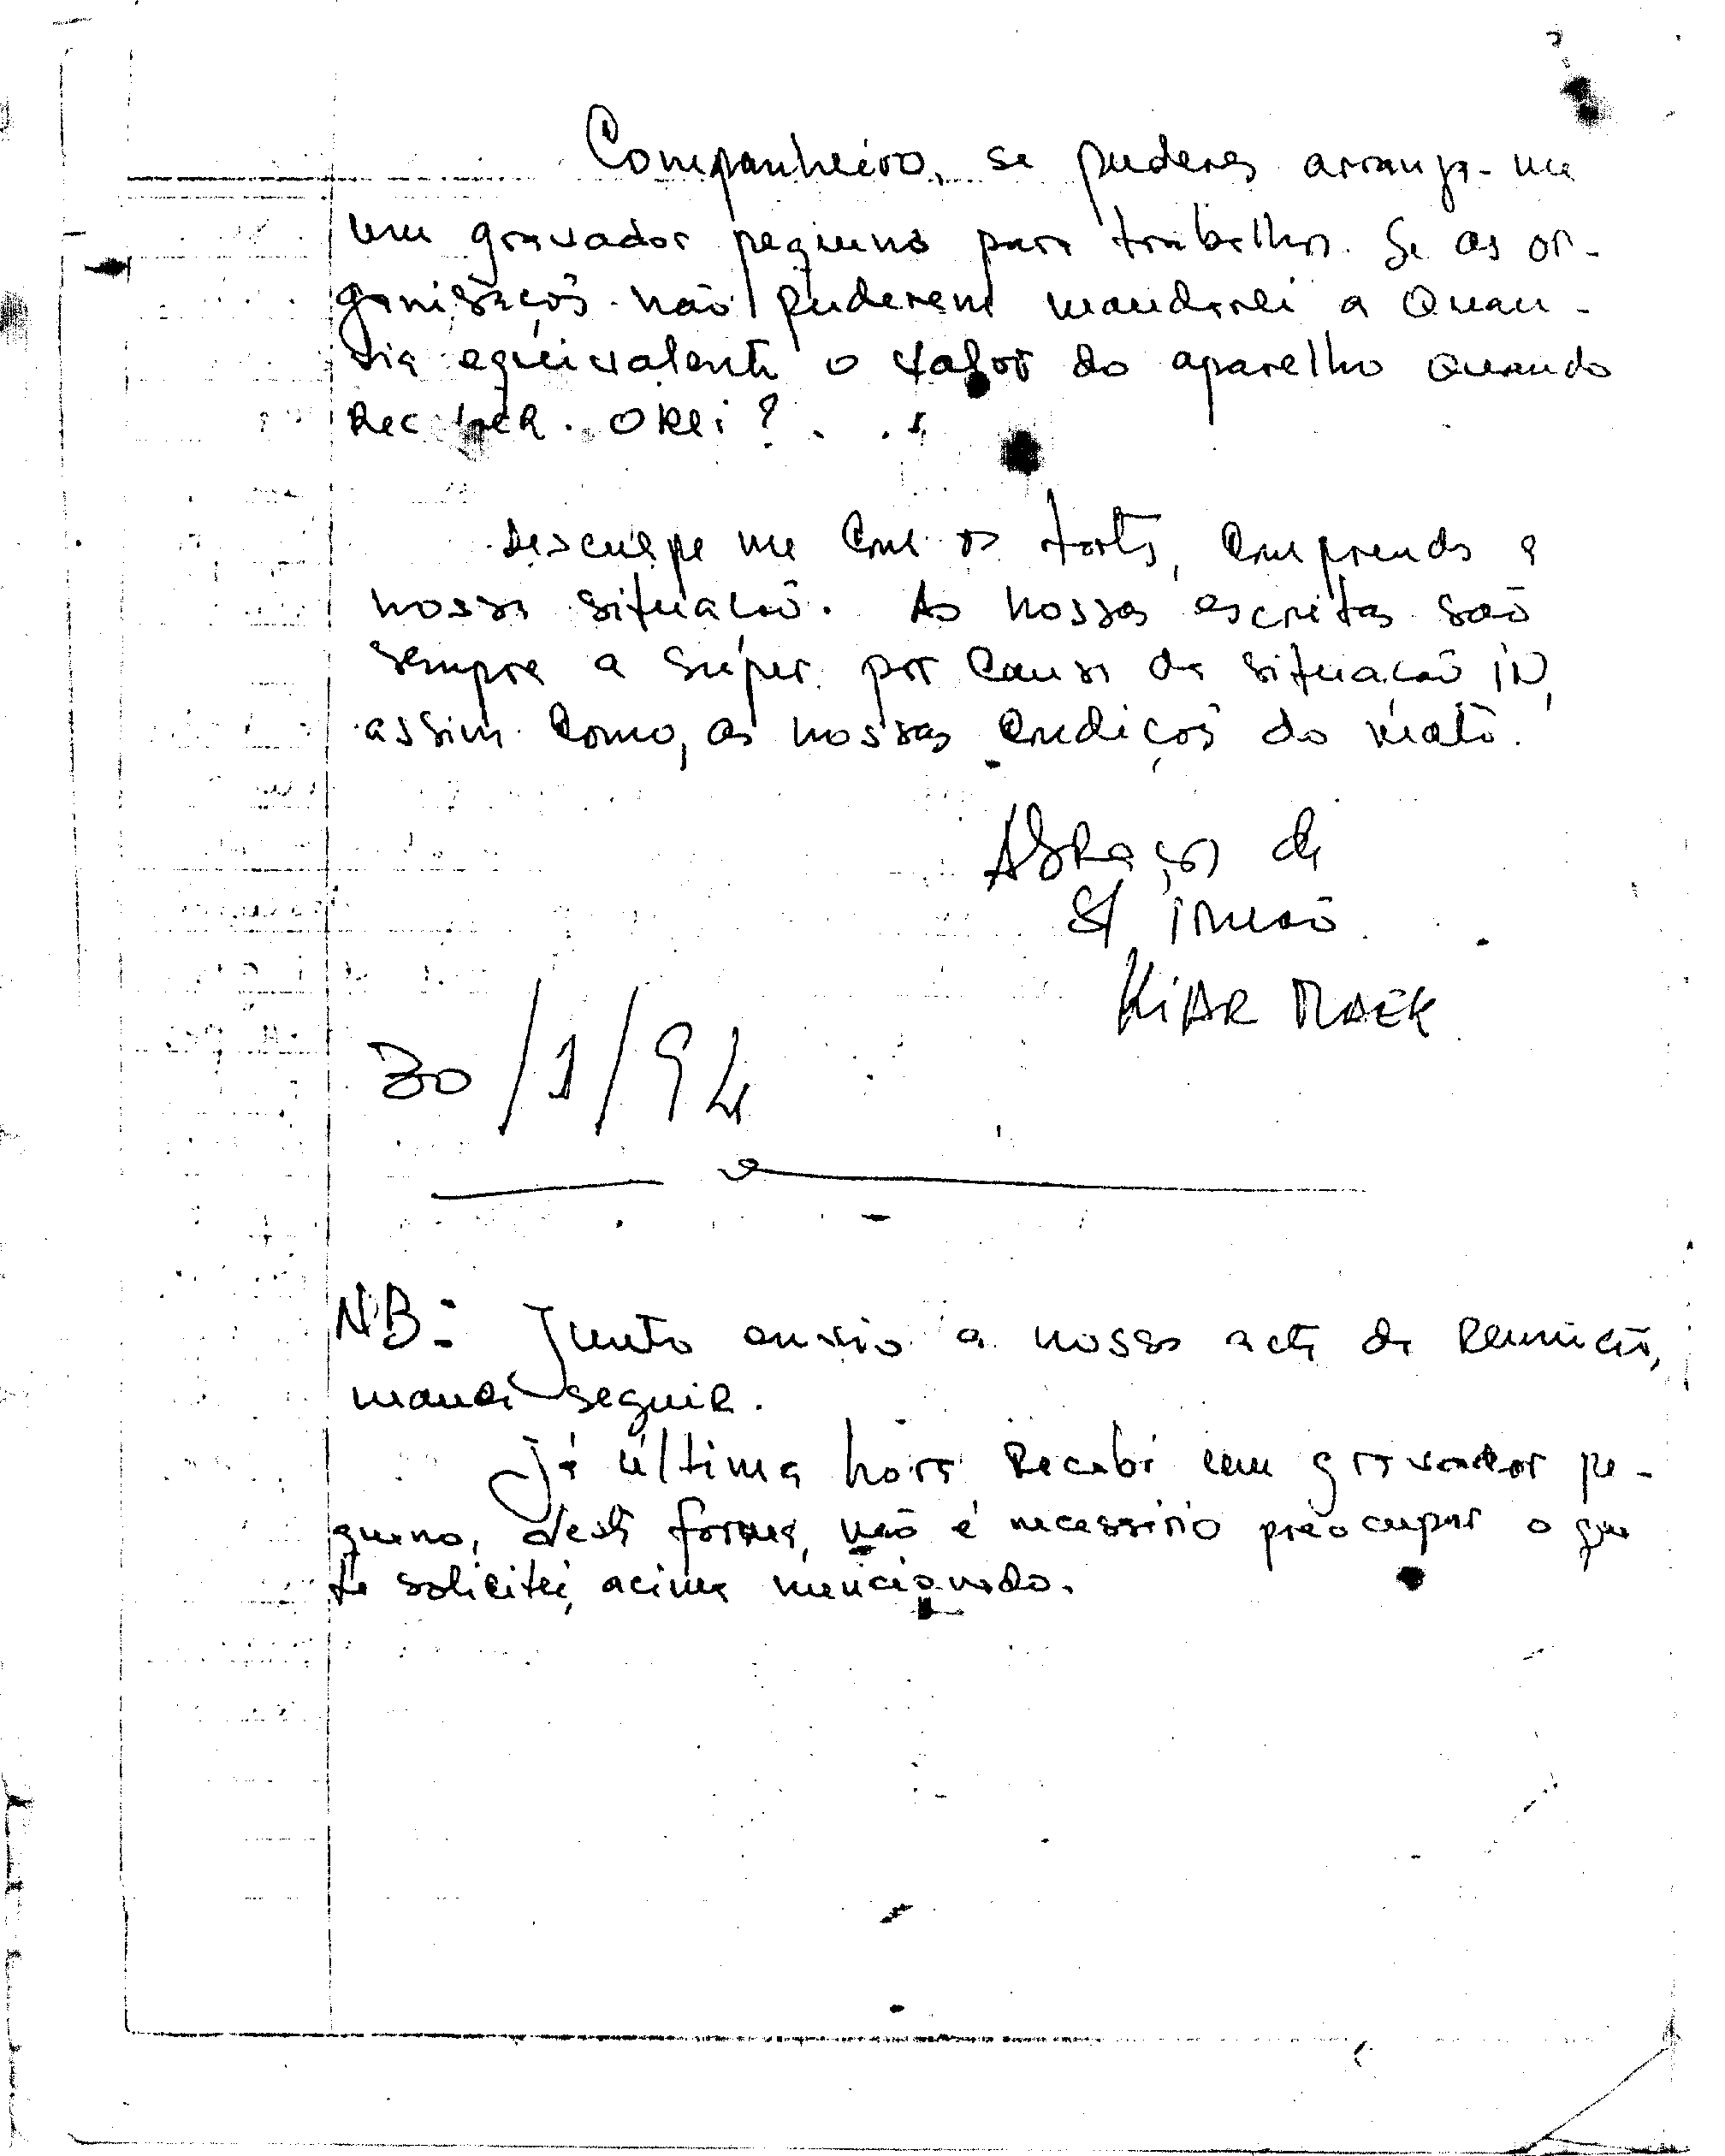 Companheiro, se puderes arranja-me
um gravador pequeno para trabalhos. Se as or-
ganisaçoẽs não puderem mandarei a Quan-
tia equivalente o valor do aparelho Quando
Receber. Oklei?
Desculpe me com os tortos, comprenda a
nossa situacaõ. As nossas escritas saõ
sempre a super por causa da situacaõ iN,
assim como, as nossas condiçoẽs do mato.
Abraços de
irmaõ
KiAR MAEK
30/1/94
NB: Junto envio a nossa acta de Reunicaõ,
manda seguir.
Já última hora Recebi um gravador pe-
queno, desta forma, não é necessário preocupar o que
te solicitei, acima mencionado.